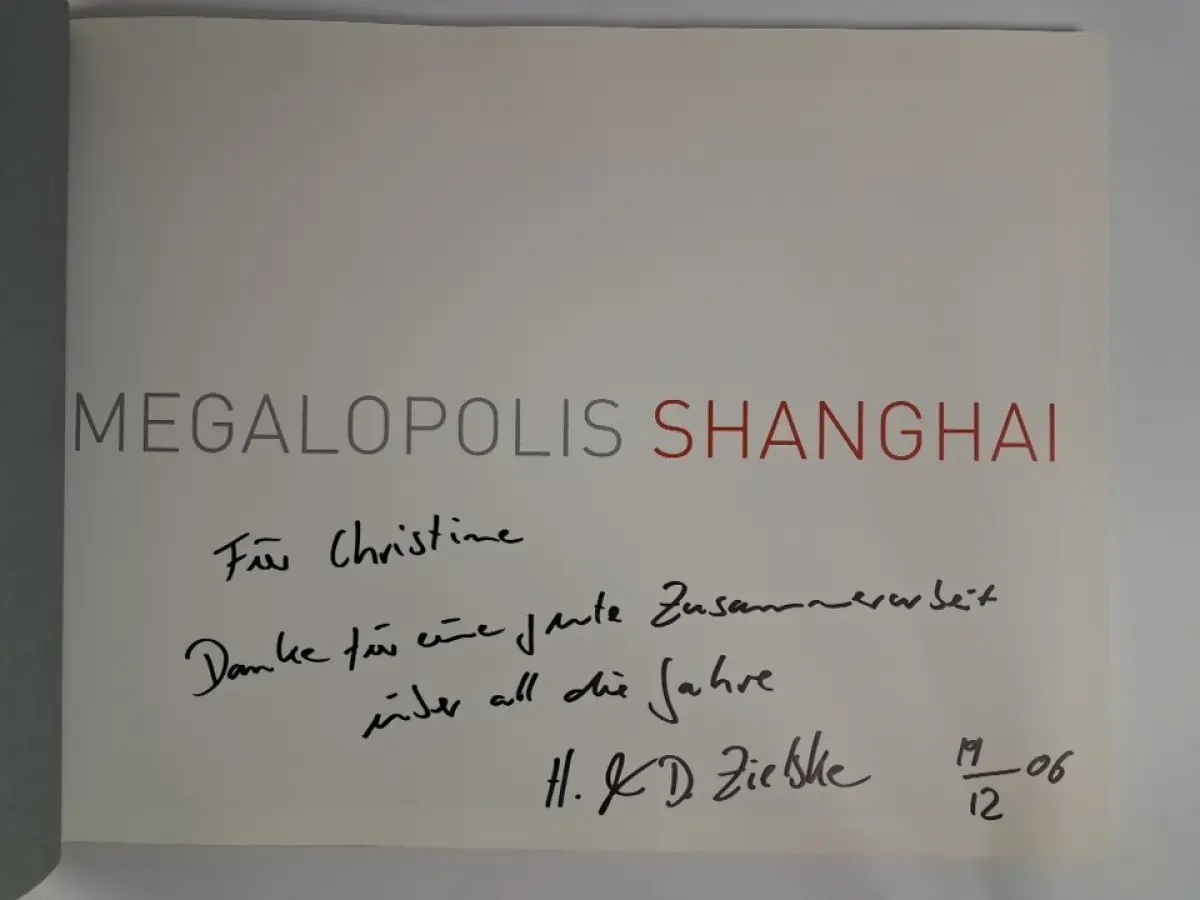 MEGALOPOLIS SHANGHAI
Für Christine
Danke für eine gute Zusammenarbeit
über all die Jahre
H. & D. Zielske 19/12 06